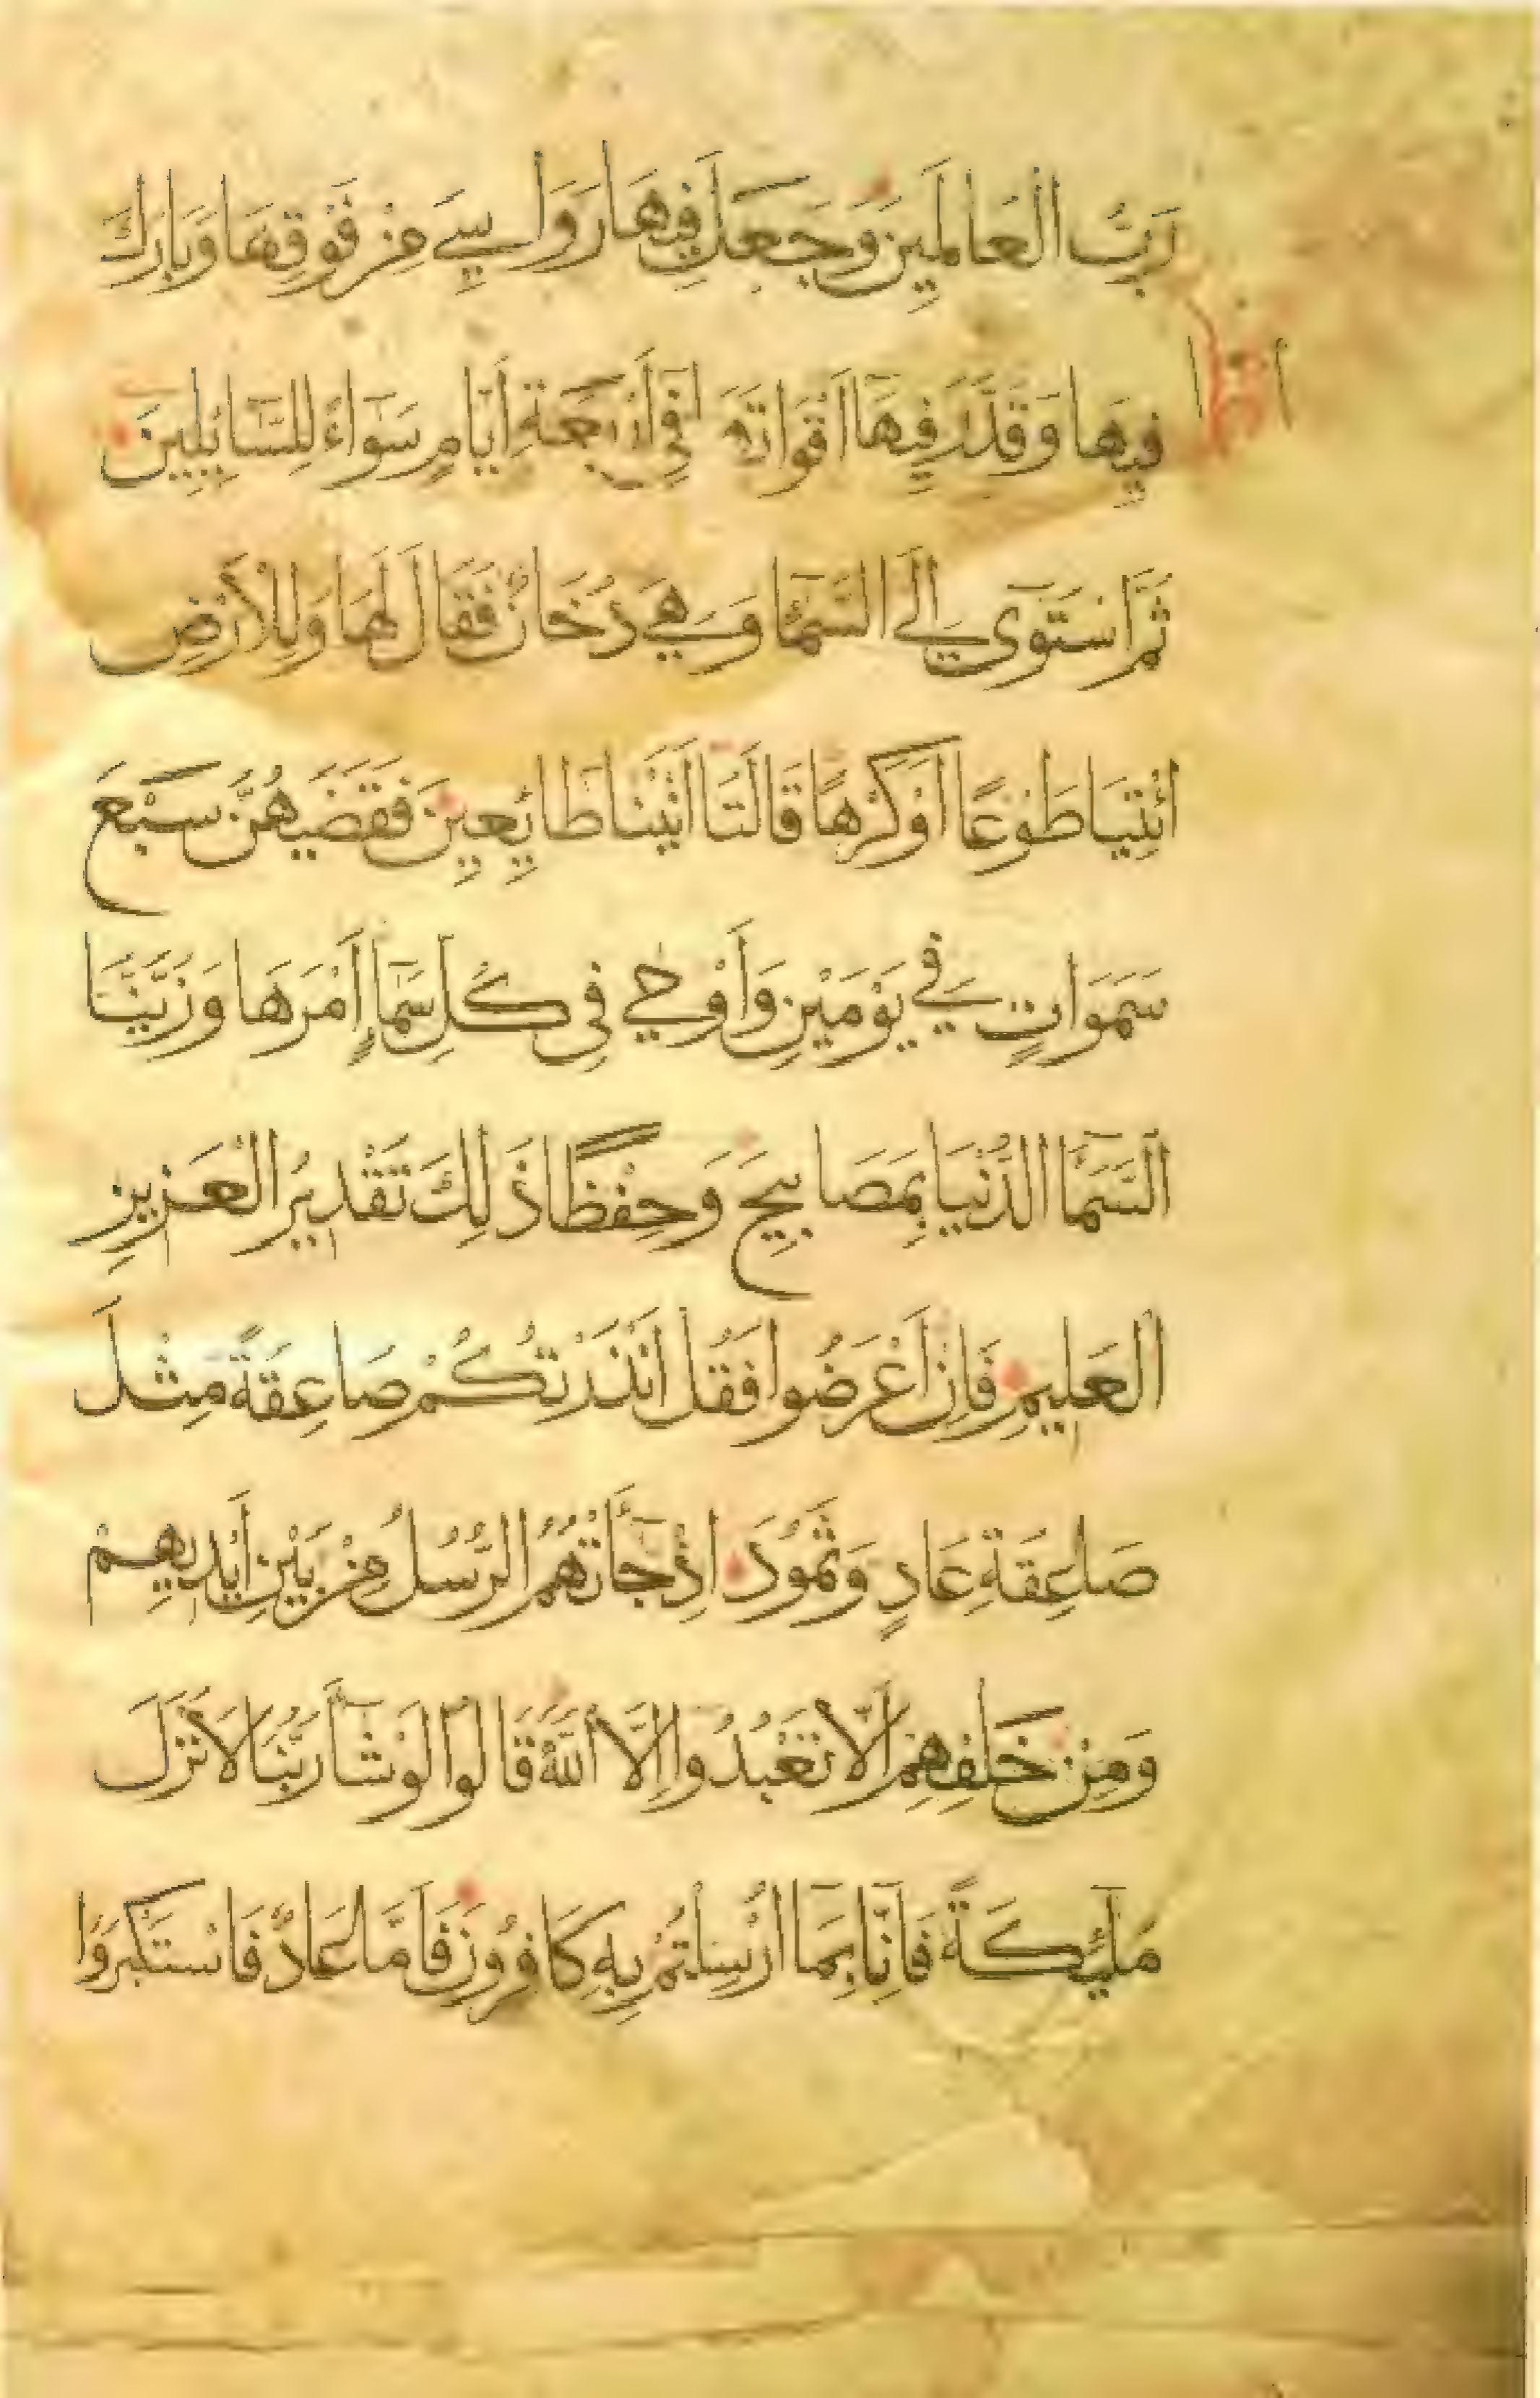 رَبُّ الْعَالَمِينَ وَجَعَلَ فِيهَا رَوَاسِيَ مِنْ فَوْقِهَا وَبَارَكَ
فِيهَا وَقَدَّرَ فِيهَا أَقْوَاتَهَا فِي أَرْبَعَةِ أَيَّامٍ سَوَاءً لِلسَّائِلِينَ
ثُمَّ اسْتَوَى إِلَى السَّمَا وَهِيَ دُخَانٌ فَقَالَ لَهَا وَلِلْأَرْضِ
ائْتِيَا طَوْعًا أَوْ كَرْهًا قَالَتَا أَتَيْنَا طَائِعِينَ فَقَضَيهُنَّ سَبْعَ
سَمَوَاتٍ فِي يَوْمَيْنِ وَأَوْحَى فِي كُلِّ سَمَاءٍ أَمْرَهَا وَزَيَّنَّا
السَّمَا الدُّنْيَا بِمَصَابِيحَ وَحِفْظًا ذَلِكَ تَقْدِيرُ الْعَزِيزِ
الْعَلِيمِ فَإِنْ أَعْرَضُوا فَقُلْ أَنْذَرْتُكُمْ صَاعِقَةً مِثْلَ
صَاعِقَةِ عَادٍ وَثَمُودَ إِذْ جَاءَتْهُمُ الرُّسُلُ مِنْ بَيْنِ أَيْدِيهِمْ
وَمِنْ خَلْفِهِمْ أَلَّا تَعْبُدُوا إِلَّا اللَّهَ قَالُوا لَوْ شَاءَ رَبُّنَا لَأَنْزَلَ
مَلَئِكَةً فَإِنَّا بِمَا أُرْسِلْتُمْ بِهِ كَافِرُونَ فَأَمَّا عَادٌ فَاسْتَكْبَرُوا